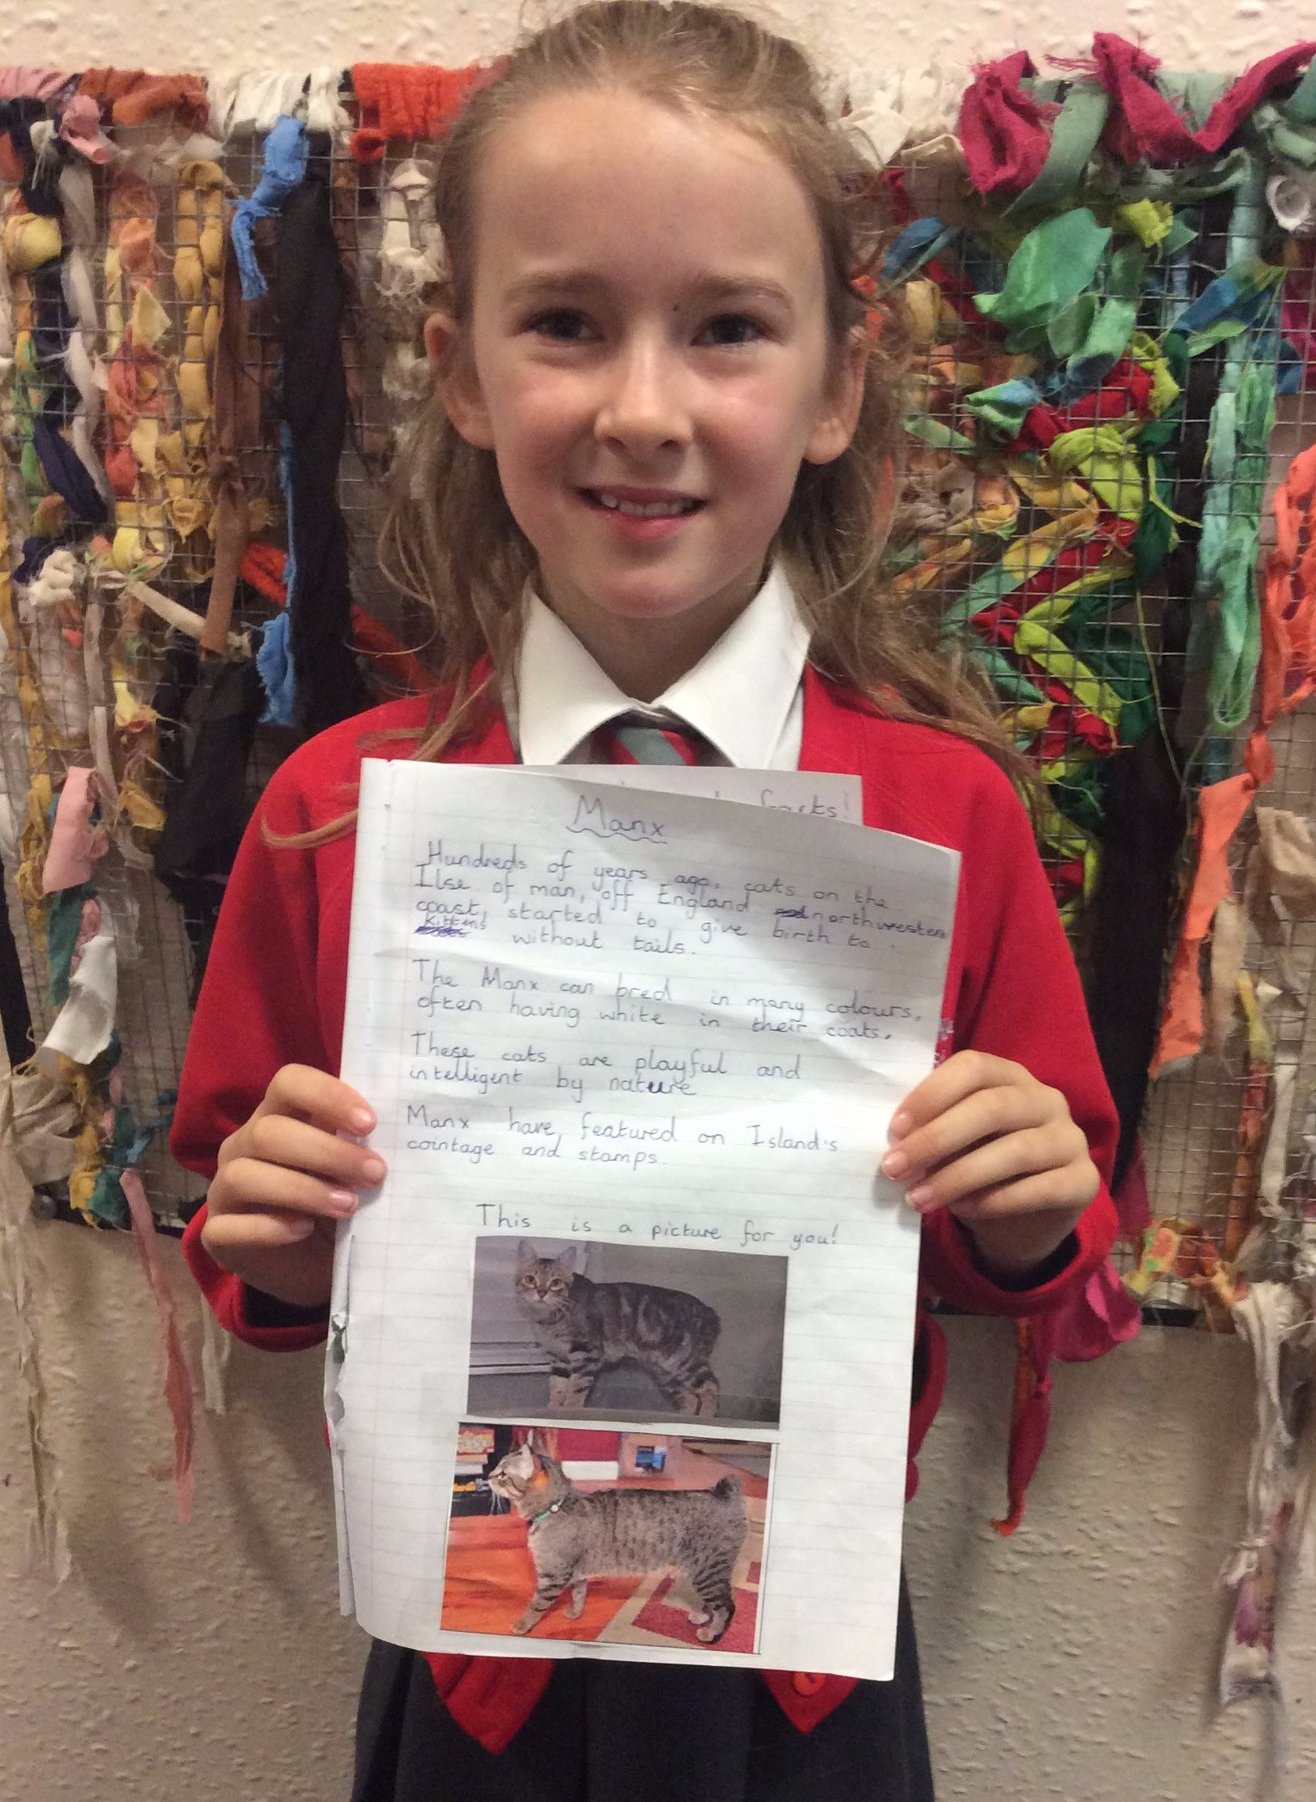 facts!
Manx
Hundreds of years ago, cats on the
Ilse of man, off England northwestern
coast, started to give birth to
kittens without tails.
The Manx can bred in many colours,
often having white in their coats.
These cats are playful and
intelligent by nature
Manx have featured on Island's
cointage and stamps.
This is a picture for you!